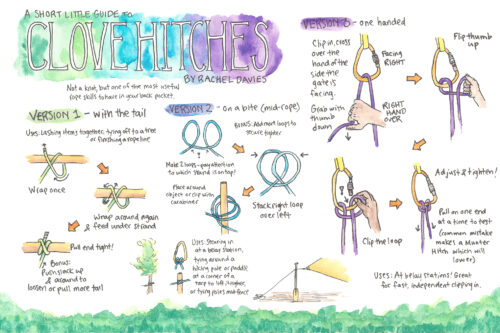 A SHORT LITTLE GUIDE to
CLOVE HITCHES
BY RACHEL DAVIES
Not a knot, but one of the most useful
rope skills to have in your back pocket
VERSION 1 - with the tail
Uses: Lashing items together, tying off to a tree
or finishing a rope line
Wrap once
Wrap around again
& feed under strand
Pull end tight!
Bonus:
Push slack up
& around to
loosen or pull more tail
VERSION 2 - on a bite (mid-rope)
BONUS: Add more loops to
secure tighter
Make 2 loops - pay attention
to which strand is on top!
Stack right loop
over left
Place around
object or clip with
carabiner
Uses: Securing in
at a belay station,
tying around a
hiking pole or paddle
at a corner of a
tarp to lift it higher,
or tying poles mid-fence
VERSION 3 - one handed
Clip in, cross
over the
hand of the
side the
gate is
facing.
Facing
RIGHT
Grab with
thumb
down
RIGHT
HAND
OVER
Flip thumb
up
Clip the loop
Adjust & tighten!
Pull on one end
at a time to test
(common mistake
makes a Munter
Hitch which will
lower)
Uses: At belay stations! Great
for fast, independent clipping in.